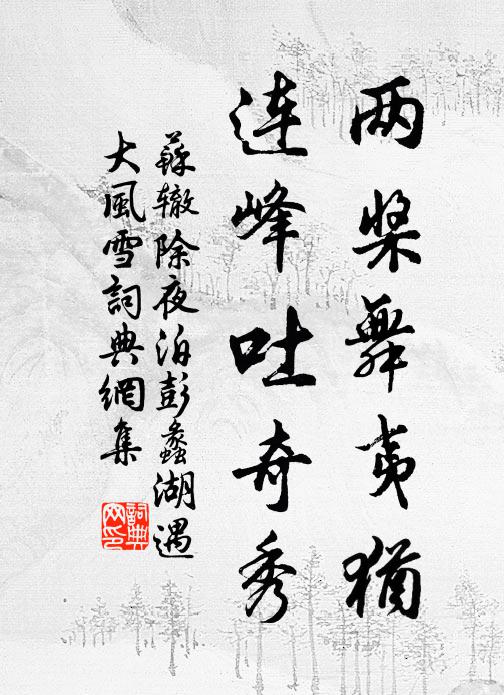 两桨舞夷犹
连峰吐奇秀
苏辙除夜泊彭蠡湖遇
大風雪詞典網集
詞典
网印